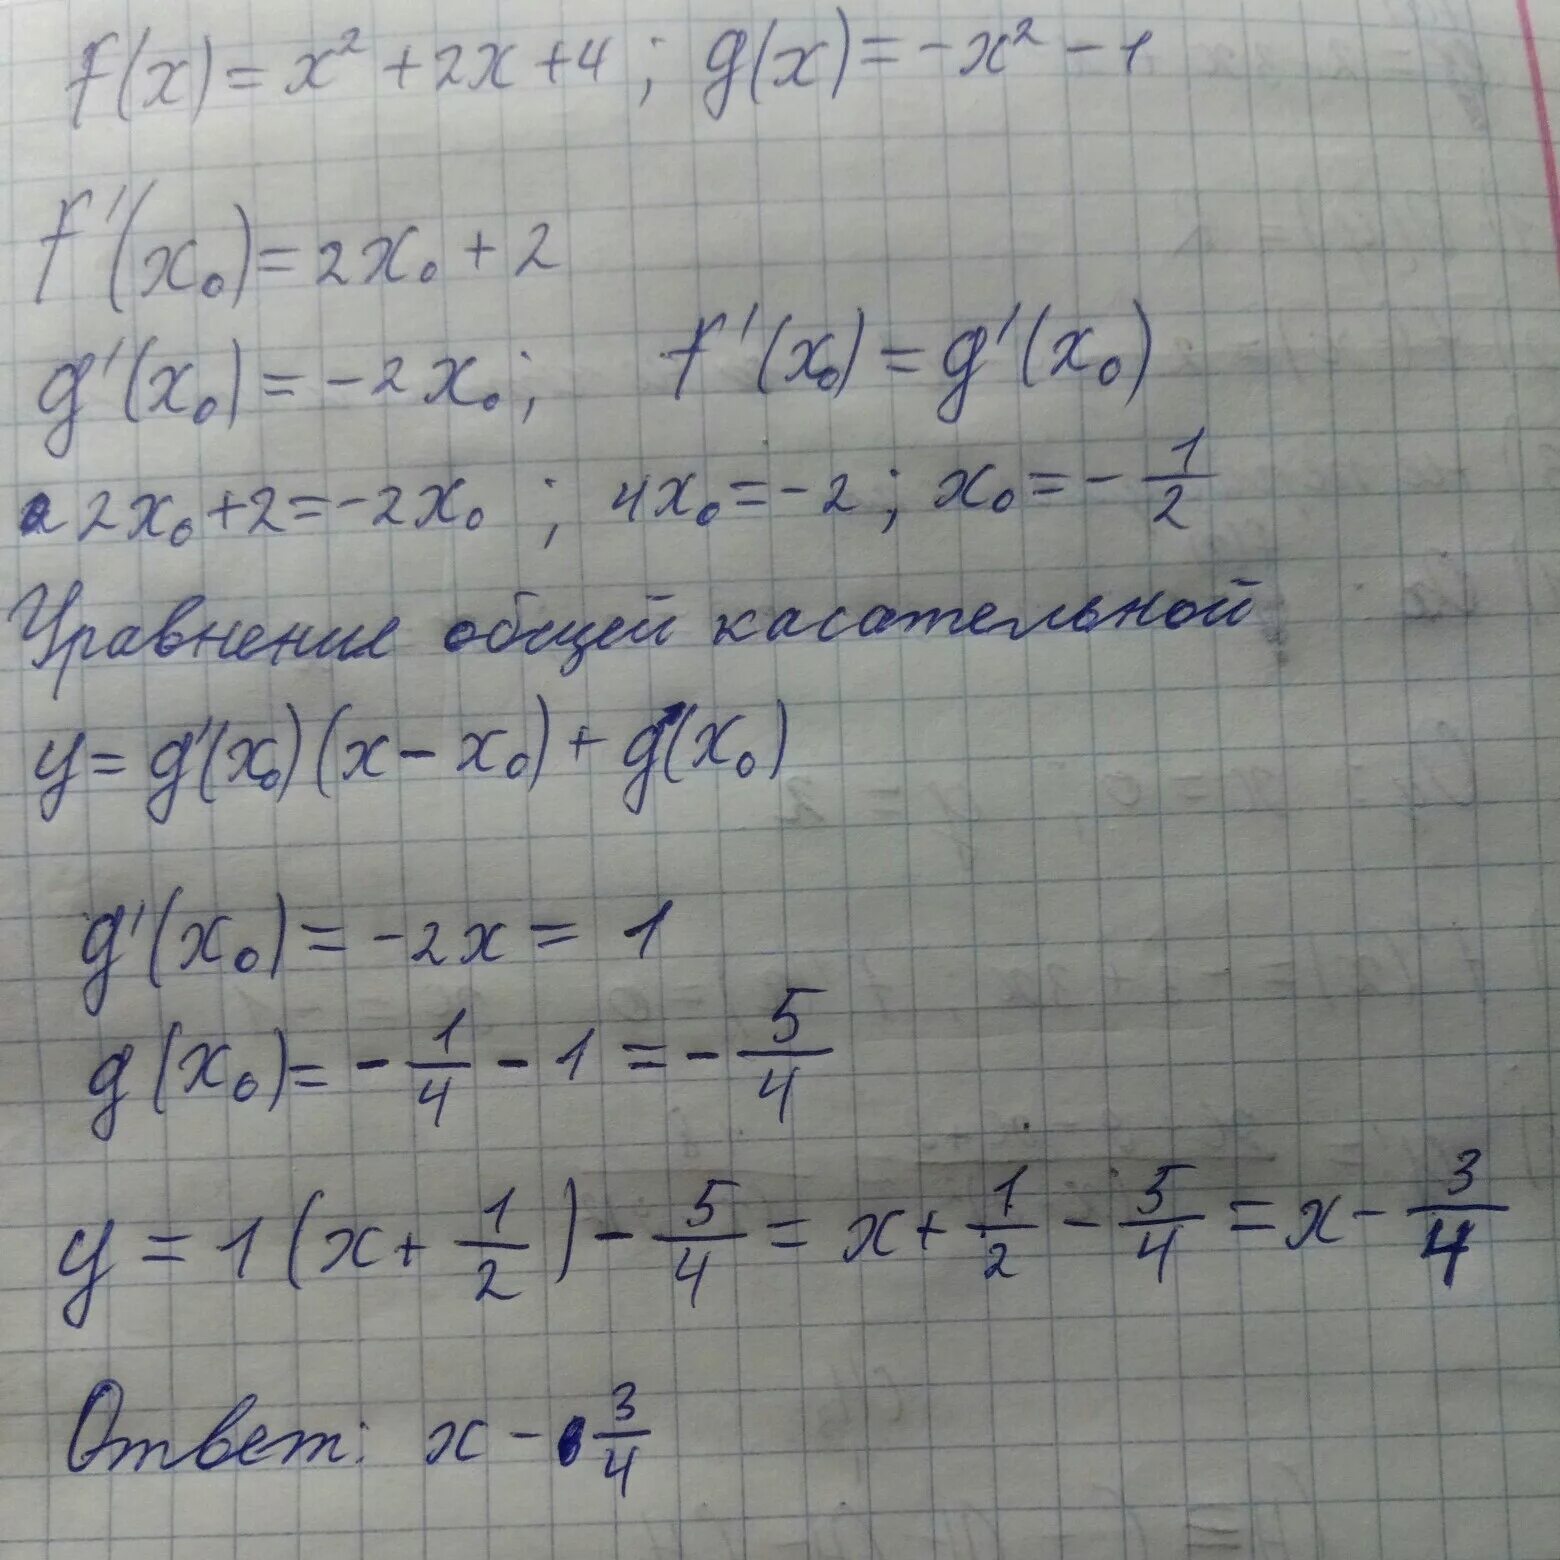 f(x) = x² + 2x + 4 ; g(x) = -x² - 1
f'(x₀) = 2x₀ + 2
g'(x₀) = -2x₀ ; f'(x₀) = g'(x₀)
2x₀ + 2 = -2x₀ ; 4x₀ = -2 ; x₀ = -1/2
Уравнение общей касательной
y = g'(x₀)(x - x₀) + g(x₀)
g'(x₀) = -2x = 1
g(x₀) = -1/4 - 1 = -5/4
y = 1(x + 1/2) - 5/4 = x + 1/2 - 5/4 = x - 3/4
Ответ: x - 3/4